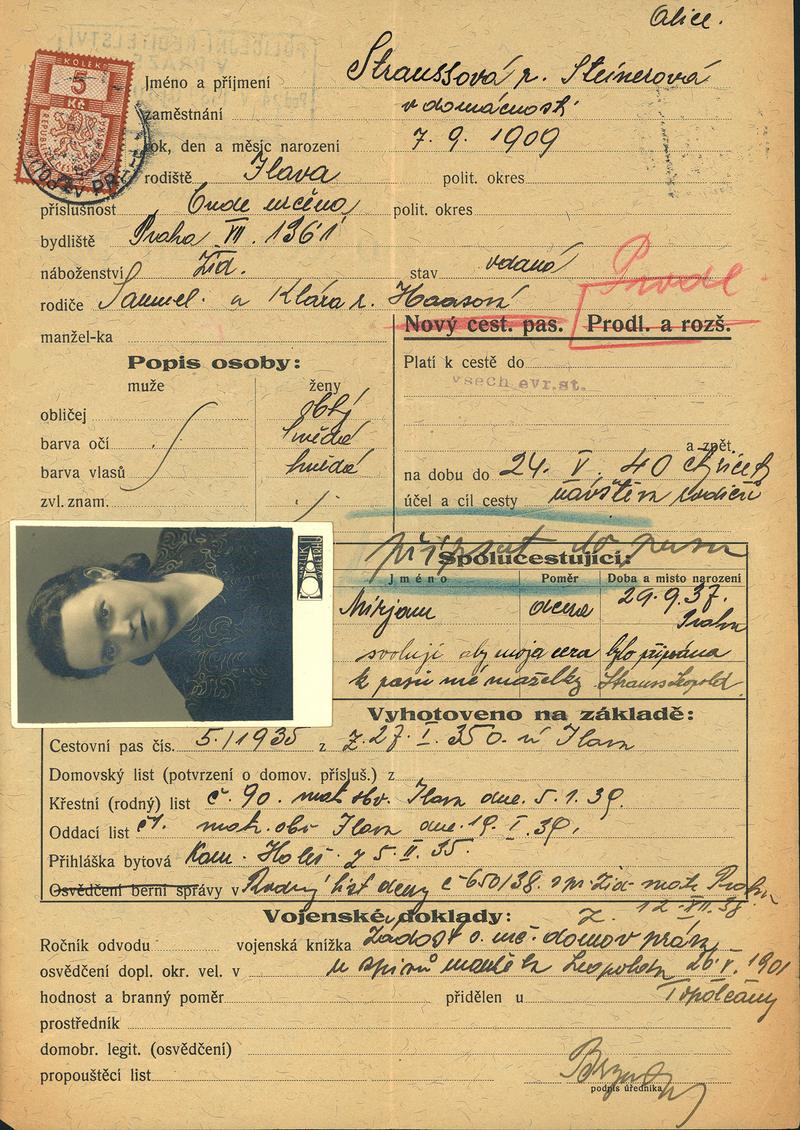 Alice.
KOLEK
5
Kč
Jméno a příjmení Straussová r. Steinerová
zaměstnání v domácnosti
rok, den a měsíc narození 7. 9. 1909
rodiště Ilava polit. okres
příslušnost Bude určena polit. okres
bydliště Praha VII. 1361
náboženství Žid. stav vdaná
Prodl
rodiče Samuel a Klára r. Haasová
Nový cest. pas. Prodl. a rozš.
manžel-ka
Popis osoby:
Platí k cestě do
všech evr. st.
muže ženy
obličej oblý
barva očí hnědé
a zpět.
barva vlasů hnědé
na dobu do 24. V. 40
zvl. znam.
účel a cíl cesty návštěva rodičů
připsat do pasu
Spolucestující:
Jméno Poměr Doba a místo narození
Mirjam dcera 29. 9. 37.
Praha
svoluji aby moja cera bylo připsána
k pasu mé maželky Strauss Leopold.
Vyhotoveno na základě:
Cestovní pas čís. 5./1935 z Z. 27. I. 350. v Ilava
Domovský list (potvrzení o domov. přísluš.) z
Křestní (rodný) list č. 90. mat. obv. Ilava dne. 5. 1. 39.
Oddací list č 1. matr. obv. Ilava dne. 19. I. 39.
Přihláška bytová Kom. Holeš. z 5. II. 35.
Osvědčení berní správy v Rodný list dcery č 650/38. Žid. matr. Praha
Z. 12. XII. 38.
Vojenské doklady:
Ročník odvodu vojenská knížka Žádost o domov práv
osvědčení dopl. okr. vel. v u spisů manžela Leopolda 26. V. 1901
hodnost a branný poměr přidělen u Topolčany
prostředník
domobr. legit. (osvědčení)
propouštěcí list
podpis úředníka